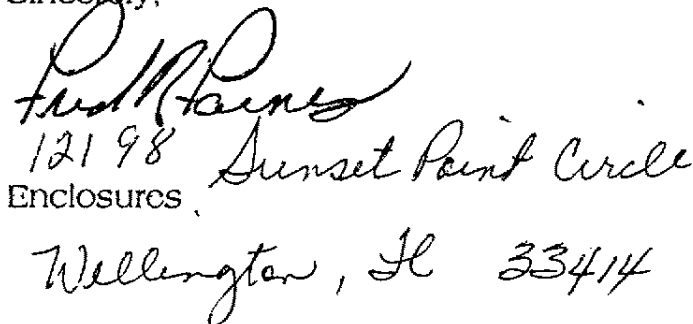 Sincerely,
Fred R Haines
12198 Sunset Point Circle
Enclosures
Wellington, Fl 33414